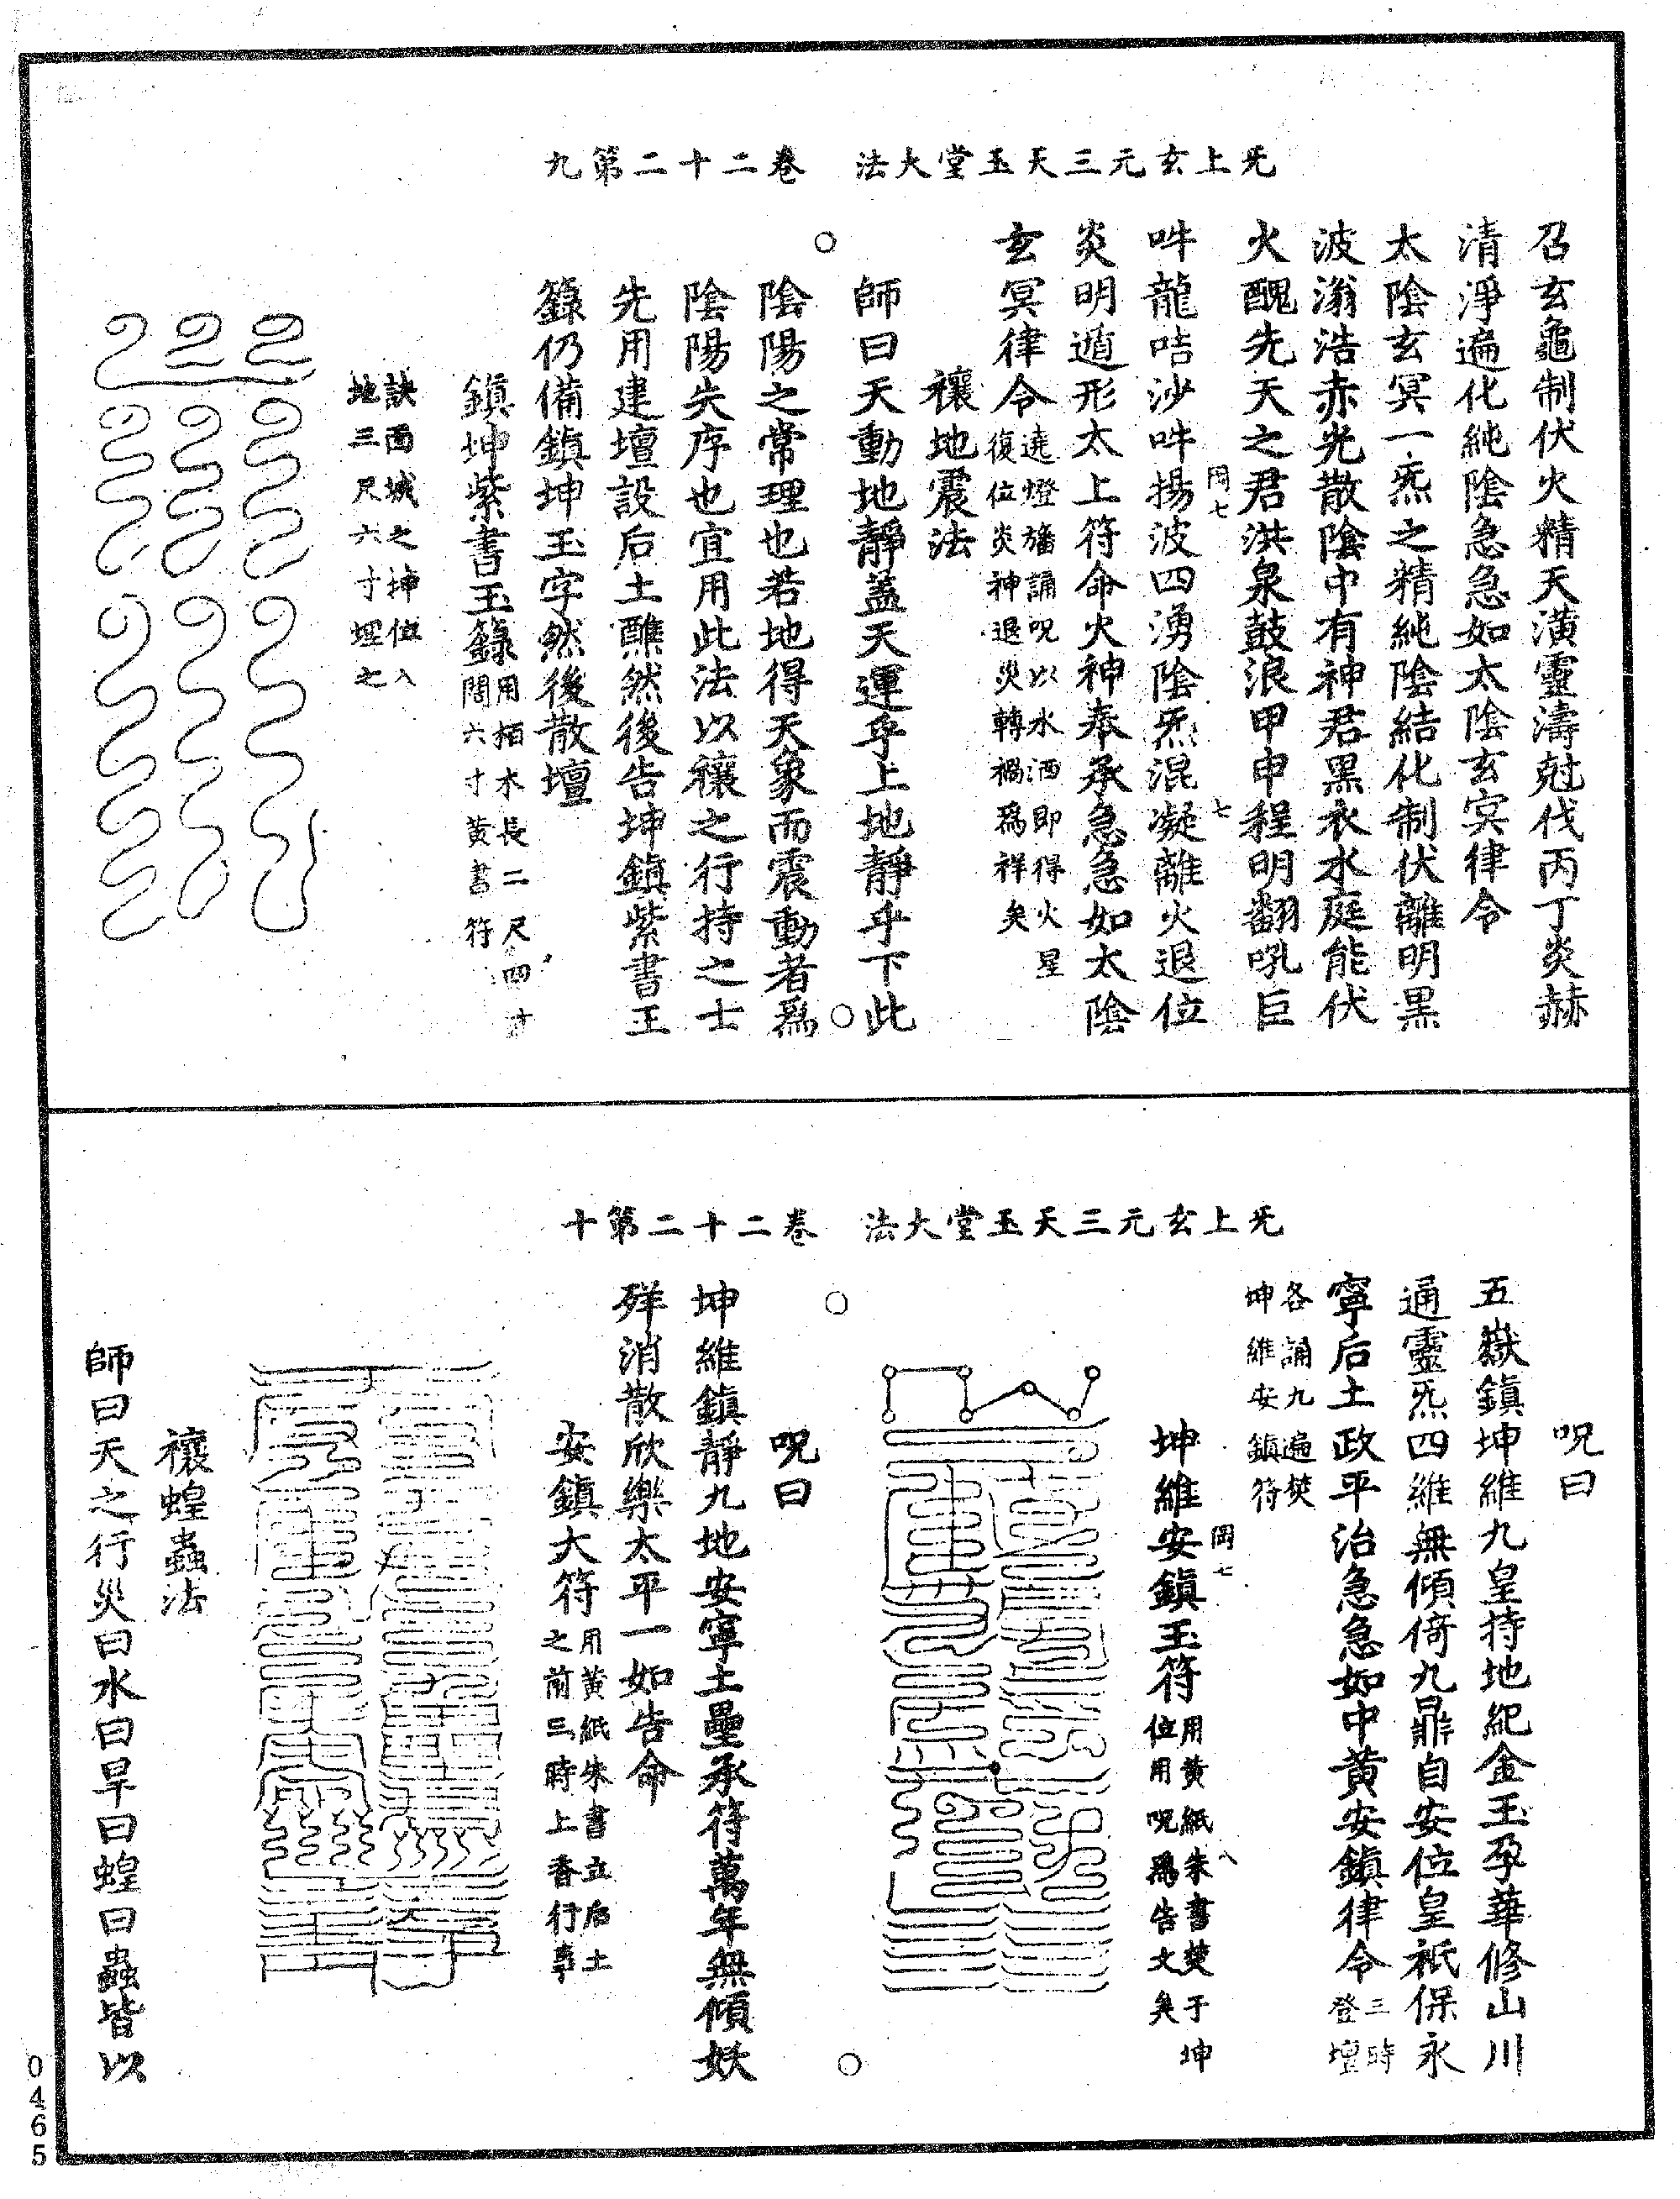 无上玄元三天玉堂大法　卷二十二第九
召玄龜制伏火精天潢靈濤尅伐丙丁炎赫
清淨遍化純陰急急如太陰玄冥律令
太陰玄冥一炁之精純陰結化制伏離明黑
波滃浩赤光散陰中有神君黑衣水庭能伏
火醜先天之君洪泉鼓浪甲申程明翻吼巨
岡七
七
吽龍咭沙吽揚波四湧陰炁混凝離火退位
炎明遁形太上符命火神奉承急急如太陰
玄冥律令遶燈旛誦呪以水洒即得火星
復位炎神退災轉禍爲祥矣
禳地震法
師曰天動地靜蓋天運乎上地靜乎下此
陰陽之常理也若地得天象而震動者爲
陰陽失序也宜用此法以禳之行持之士
先用建壇設后土醮然後告坤鎮紫書玉
籙仍備鎮坤玉字然後散壇
鎮坤紫書玉籙用栢木長二尺四寸
闊六寸黃書符
訣面城之坤位入
地三尺六寸埋之
无上玄元三天玉堂大法　卷二十二第十
呪曰
五嶽鎮坤維九皇持地紀金玉孕華修山川
通靈炁四維無傾倚九鼎自安位皇祇保永
寧后土政平治急急如中黃安鎮律令三時
登壇
各誦九遍焚
坤維安鎮符
岡七
八
坤維安鎮玉符用黃紙朱書焚于坤
位用呪爲告文矣
呪曰
坤維鎮靜九地安寧土壘承符萬年無傾妖
殃消散欣樂太平一如告命
安鎮大符用黃紙朱書立后土
之前三時上香行事
禳蝗蟲法
師曰天之行災曰水曰旱曰蝗曰蟲皆以
0465